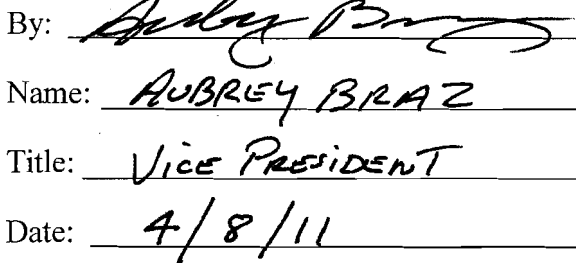 By: Aubrey Braz
Name: AUBREY BRAZ
Title: VICE PRESIDENT
Date: 4/8/11